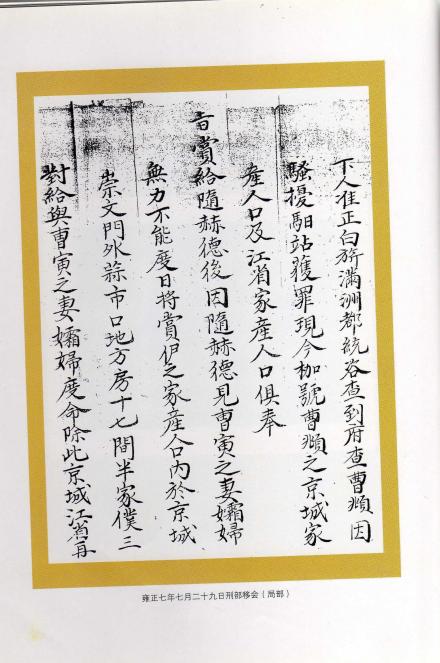 下人准正白旂滿洲都統咨查到府查曹頫因
騷擾馹站獲罪現今枷號曹頫之京城家
產人口及江省家產人口俱奉
旨賞給隨赫德後因隨赫德見曹寅之妻孀婦
無力不能度日將賞伊之家產人口內於京城
崇文門外蒜市口地方房十七間半家僕三
對給與曹寅之妻孀婦度命除此京城江省再
雍正七年七月二十九日刑部移会（局部）